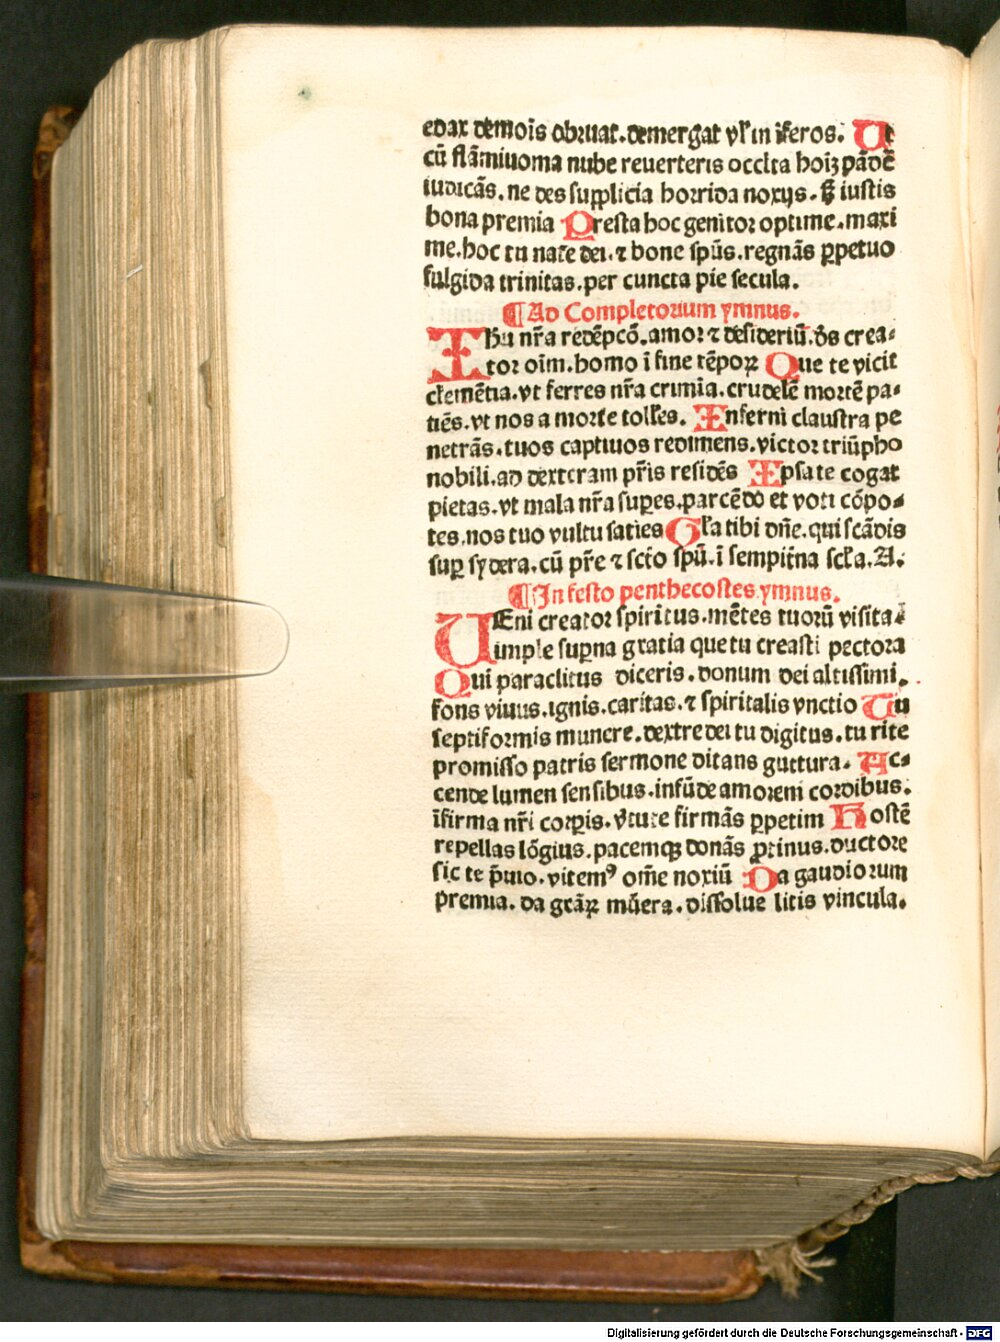 edax demoīs obruat. demergat vl' in īferos. Ut
cū flāmiuoma nube reuerteris occlta hoīꝫ pādē
iudicās. ne des supplicia horrida noxijs. ß iustis
bona premia Presta hoc genitor optime. maxi
me. hoc tu nate dei. ⁊ bone spūs. regnās ꝑpetuo
fulgida trinitas. per cuncta pie secula.
¶ Ad Completorium ymnus.
IHu nr̄a redēpcō. amor ⁊ desideriū. ds̄ crea⸗
tor oīm. homo ī fine tēpoꝝ Que te vicit
clemētia. vt ferres nr̄a crimīa. crudelē mortē pa⸗
tiēs. vt nos a morte tolles. Inferni claustra pe
netrās. tuos captiuos redimens. victor triūpho
nobili. ad dexteram pr̄is residēs Ipsa te cogat
pietas. vt mala nr̄a suꝑes. parcēdo et voti cōpo⸗
tes. nos tuo vultu saties Gl'a tibi dn̄e. qui scādis
suꝑ sydera. cū pr̄e ⁊ scto spū. ī sempit̄na scl'a. A.
¶ In festo penthecostes ymnus.
UEni creator spiritus. mētes tuorū visita.
imple suꝑna gratia que tu creasti pectora
Qui paraclitus diceris. donum dei altissimi.
fons viuus. ignis. caritas. ⁊ spiritalis vnctio Tu
septiformis munere. dextre dei tu digitus. tu rite
promisso patris sermone ditans guttura. Ac⸗
cende lumen sensibus. infūde amorem cordibus.
īfirma nr̄i corꝑis. v̄tute firmās ꝑpetim Hostē
repellas lōgius. pacemqꝫ donās ꝓtinus. ductore
sic te p̄uio. vitemꝰ om̄e noxiū Da gaudiorum
premia. da gr̄aꝝ mūera. dissolue litis vincula.
Digitalisierung gefördert durch die Deutsche Forschungsgemeinschaft - DFG